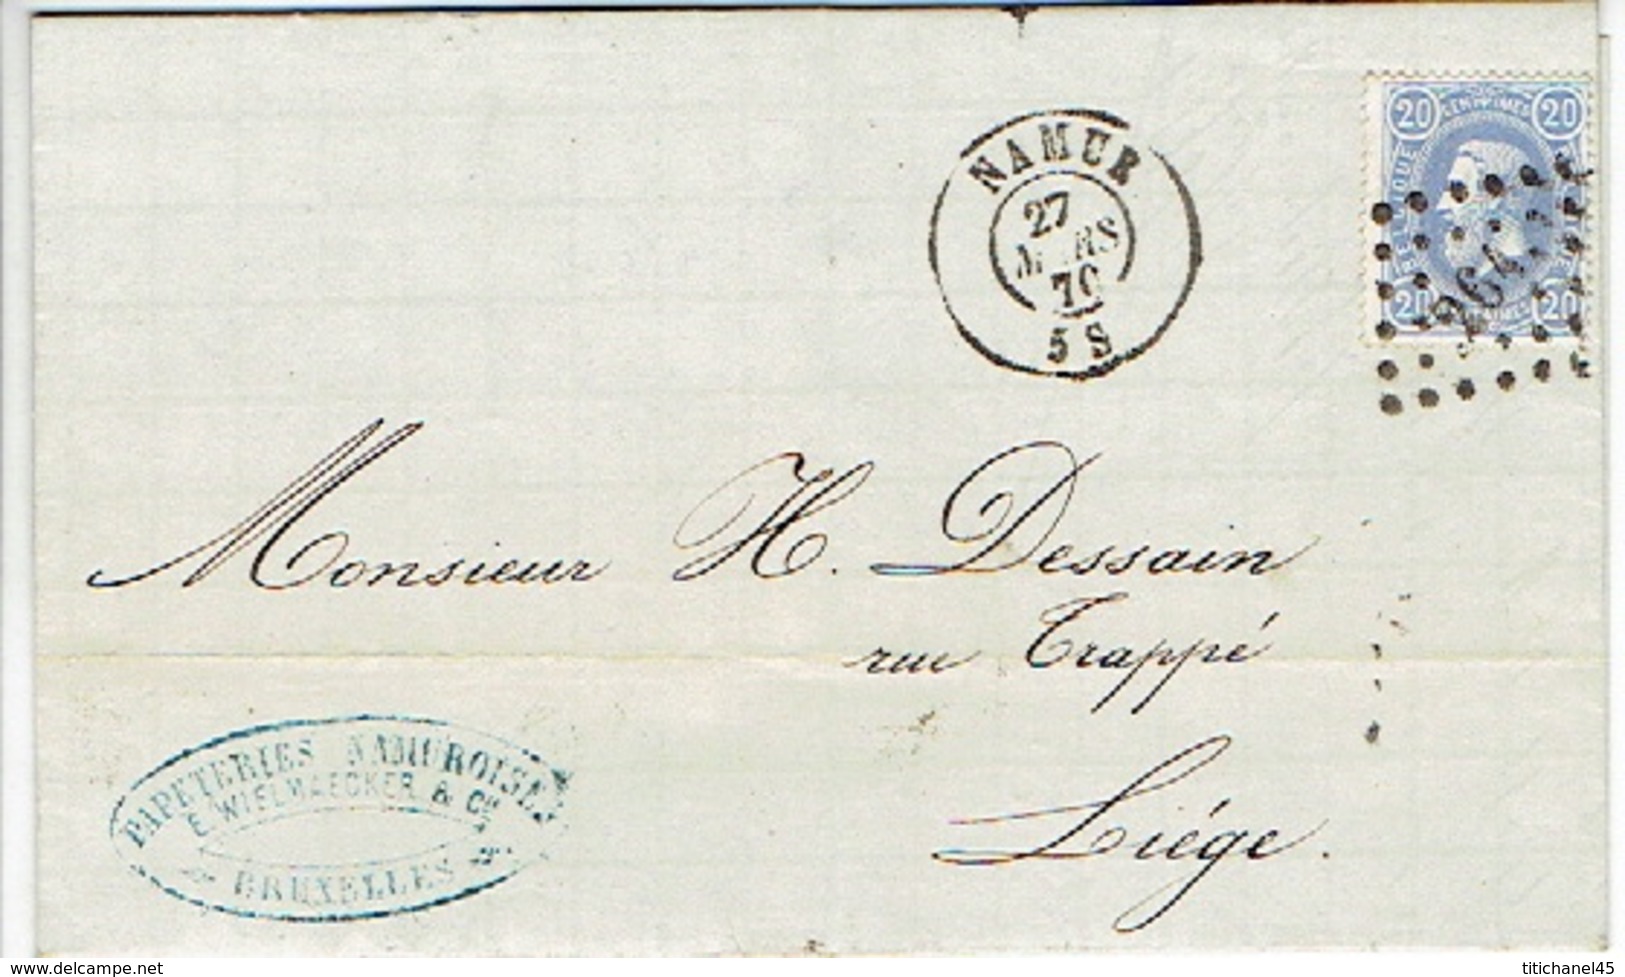 NAMUR
27
MARS
70
5 S
20 CENTIMES 20
BELGIQUE
20 20
264
Monsieur H. Dessain
rue Trappé
Liége.
PAPETERIES NAMUROISES
E. WIELMAECKER & Cie
BRUXELLES
delcampe.net
titichanel45